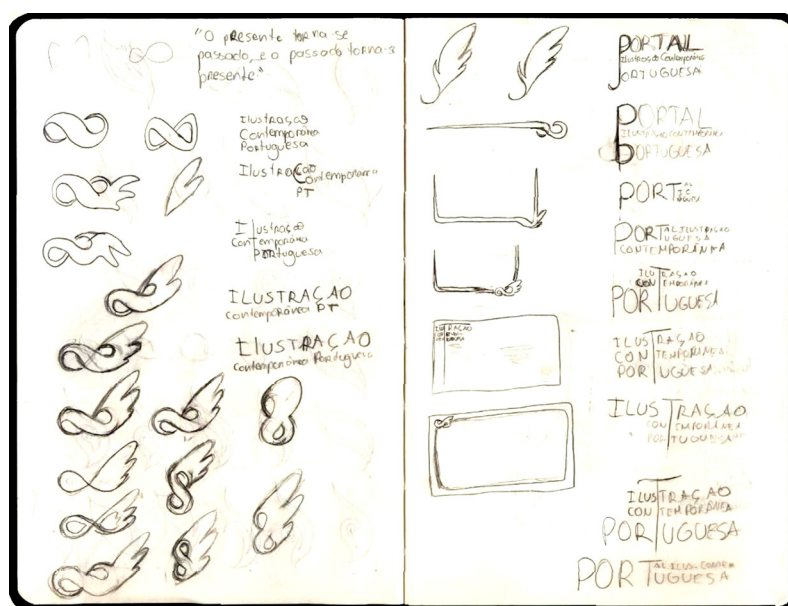 "O presente torna-se
passado, e o passado torna-se
presente"
Ilustração
Contemporânea
Portuguesa
Ilustração
Contemporânea
PT
Ilustração
Contemporânea
Portuguesa
ILUSTRAÇAO
Contemporânea PT
ILUSTRAÇAO
Contemporânea Portuguesa
PORTAL
Ilustração Contemporânea
PORTUGUESA
PORTAL
PORTUGUESA
PORTAL
PORTAL ILUSTRAÇAO
PORTUGUESA
CONTEMPORÂNEA
ILUSTRAÇAO
CONTEMPORÂNEA
PORTUGUESA
ILUSTRAÇAO
CONTEMPORÂNEA
PORTUGUESA
ILUSTRAÇAO
CONTEMPORÂNEA
PORTUGUESA
ILUSTRAÇAO
CONTEMPORÂNEA
PORTUGUESA
PORTUGUESA